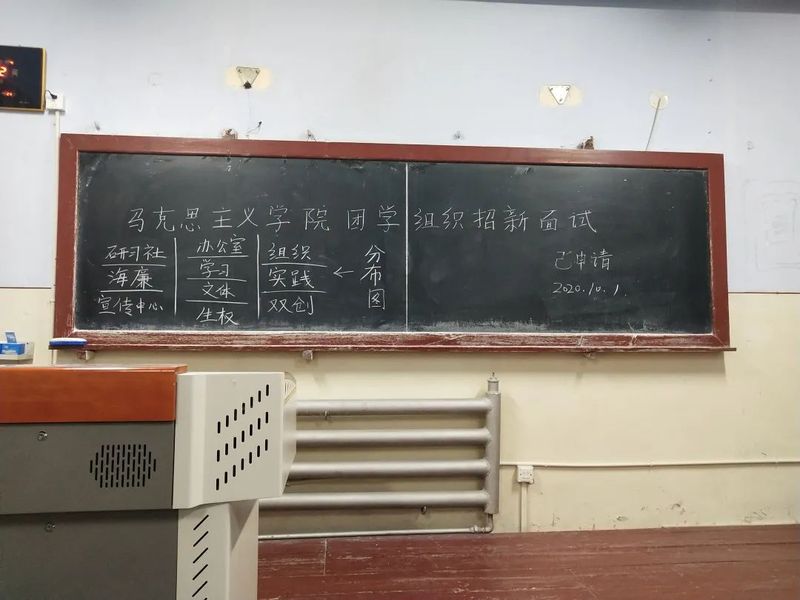 马克思主义学院 团学 组织招新面试
研习社 办公室 组织
海廉 学习 实践 ← 分布图
宣传中心 文体 双创
生权
已申请
2020.10.1.